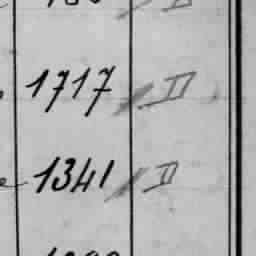 1717 II
1341 II